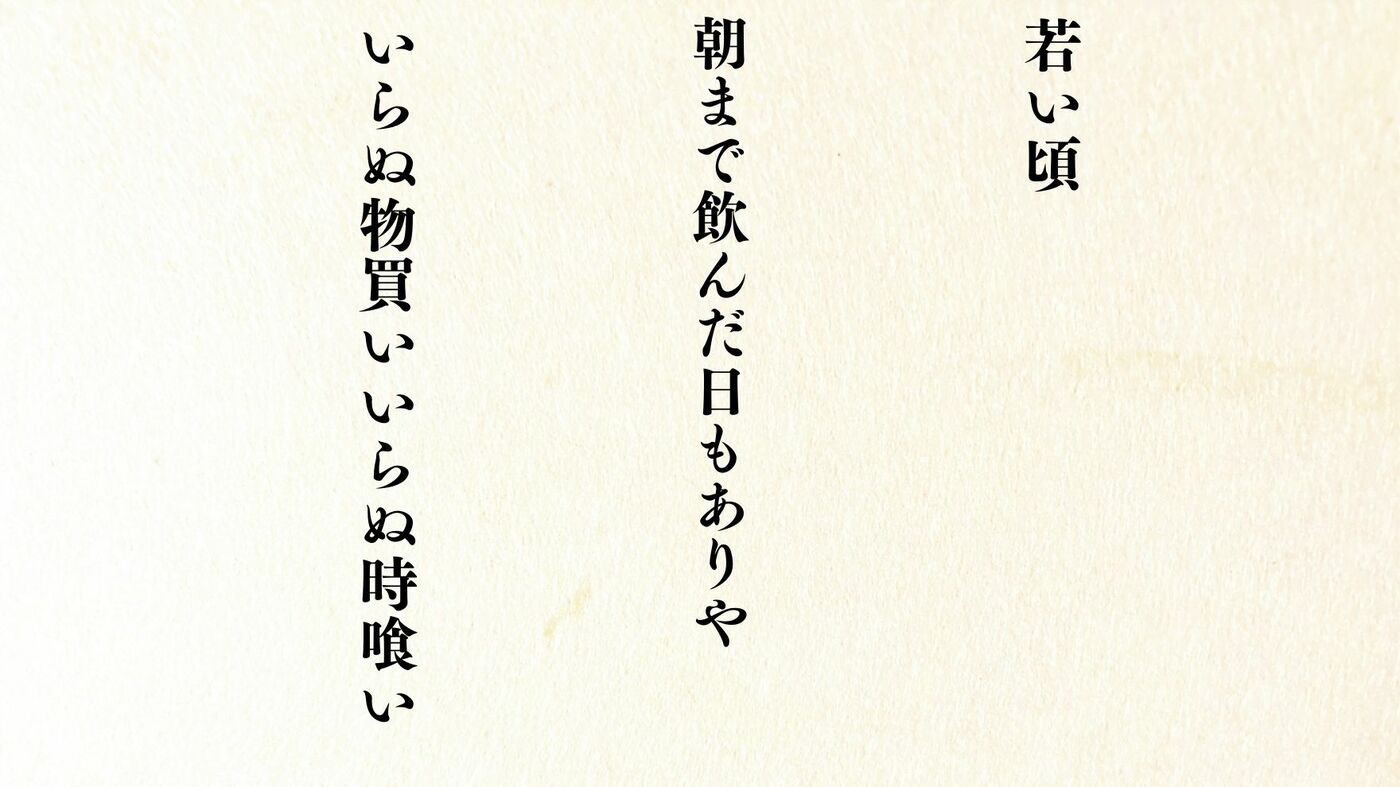 若い頃
朝まで飲んだ日もありや
いらぬ物買いいらぬ時喰い